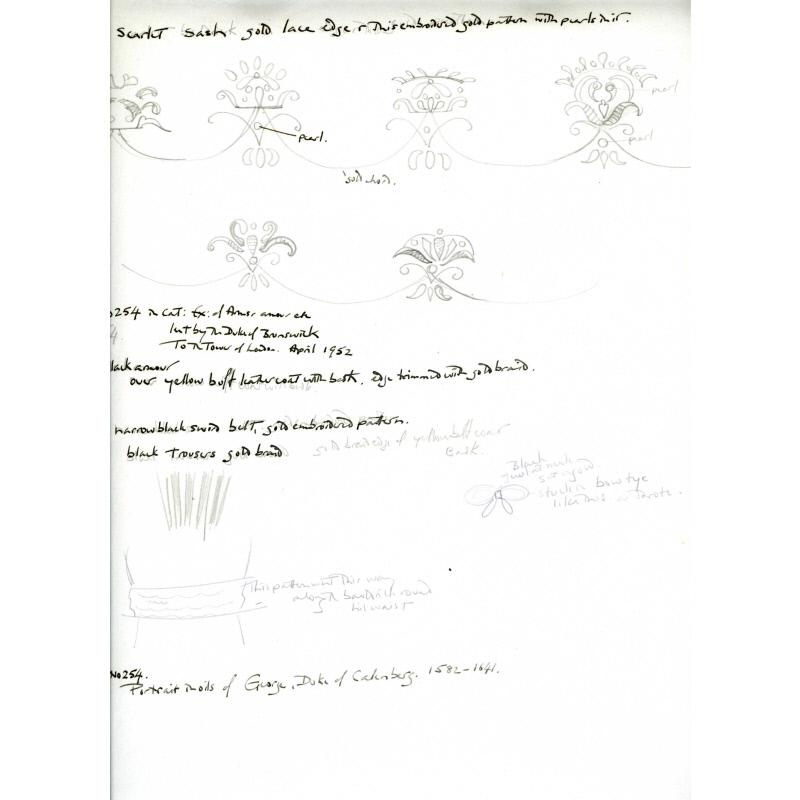 Scarlet Sash gold lace edge & this embroidered gold pattern with pearls in it.
pearl
pearl.
pearl
gold cord.
254 in Cat: Ex: of Arms: armour etc
lent by the Duke of Brunswick
To the Tower of London. April 1952
lack armour
over yellow buff leather coat with bask, edge trimmed with gold braid.
narrow black sword belt, gold embroidered pattern.
black trousers gold braid
gold braid edge of yellow buff coat
bask.
Black
jewel at neck
set in gold.
stuck in bow tye
like this at throat.
This pattern went this way
along the bandrich round
his waist
No 254.
Portrait in oils of George, Duke of Calenberg. 1582-1641.